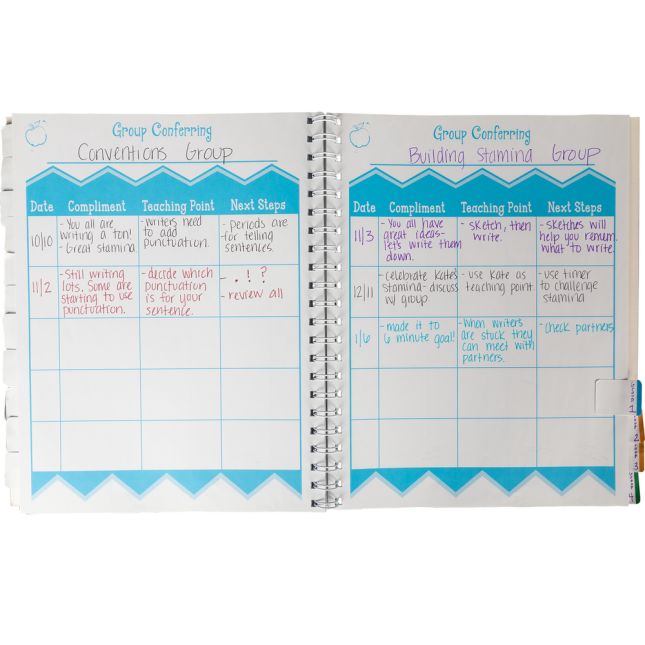 Group Conferring
Conventions Group
Date Compliment Teaching Point Next Steps
10/10
- You all are
writing a ton!
- Great stamina
- writers need
to add
punctuation.
- periods are
for telling
sentences.
11/2
- Still writing
lots. Some are
starting to use
punctuation.
- decide which
punctuation
is for your
sentence.
- . ! ?
- review all
Group Conferring
Building Stamina Group
Date Compliment Teaching Point Next Steps
11/3
- You all have
great ideas-
let's write them
down.
- sketch, then
write.
- sketches will
help you remem
what to write.
12/11
- celebrate kate's
stamina- discuss
w/ group
- use kate as
teaching point.
- use timer
to challenge
stamina
1/6
- made it to
6 minute goal!
- When writers
are stuck they
can meet with
partners.
- check partners